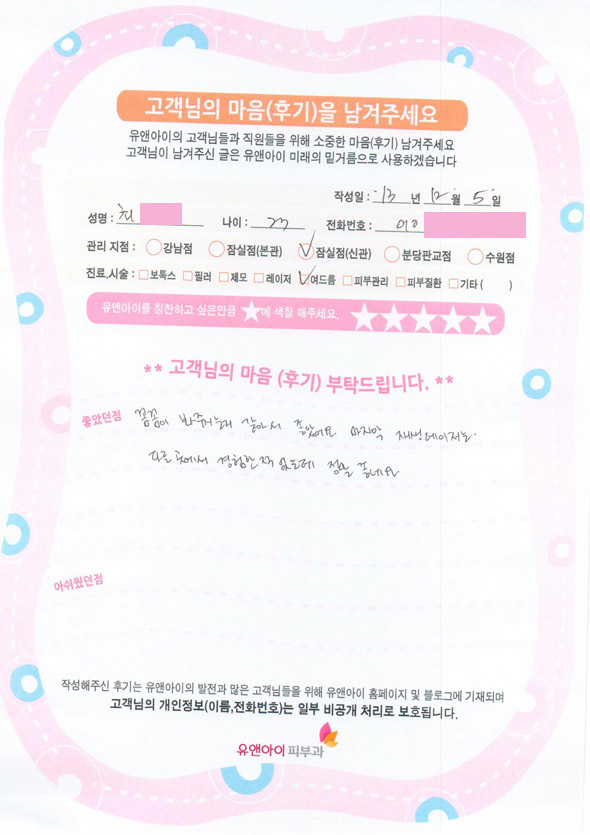 고객님의 마음(후기)을 남겨주세요
유앤아이의 고객님들과 직원들을 위해 소중한 마음(후기) 남겨주세요
고객님이 남겨주신 글은 유앤아이 미래의 밑거름으로 사용하겠습니다
작성일 : 13 년 12 월 5 일
성명 : 최 나이 : 23 전화번호 : 010
관리 지점 : 강남점 잠실점(본관) 잠실점(신관) 분당판교점 수원점
진료,시술 : 보톡스 필러 제모 레이저 여드름 피부관리 피부질환 기타 ( )
유앤아이를 칭찬하고 싶은만큼 ★에 색칠 해주세요. ★★★★★
** 고객님의 마음 (후기) 부탁드립니다. **
좋았던점 꼼꼼히 봐주시는거 같아서 좋았어요 마지막 재생레이저는
다른 곳에서 경험한적 없는데 정말 좋네요
아쉬웠던점
작성해주신 후기는 유앤아이의 발전과 많은 고객님들을 위해 유앤아이 홈페이지 및 블로그에 기재되며
고객님의 개인정보(이름,전화번호)는 일부 비공개 처리로 보호됩니다.
유앤아이피부과